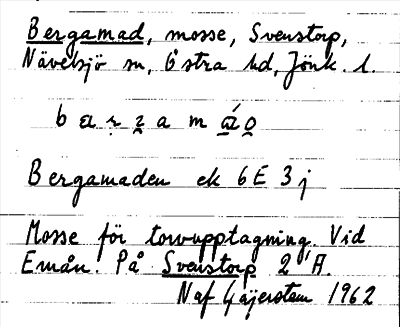 Bergamad, mosse, Svenstorp,
Nävelsjö sn, Östra hd, Jönk. l.
b a r z a m
Bergamaden ek 6E 3j
Mosse för torvupptagning. Vid
Emån. På Svenstorp 2 A.
Naf 1962